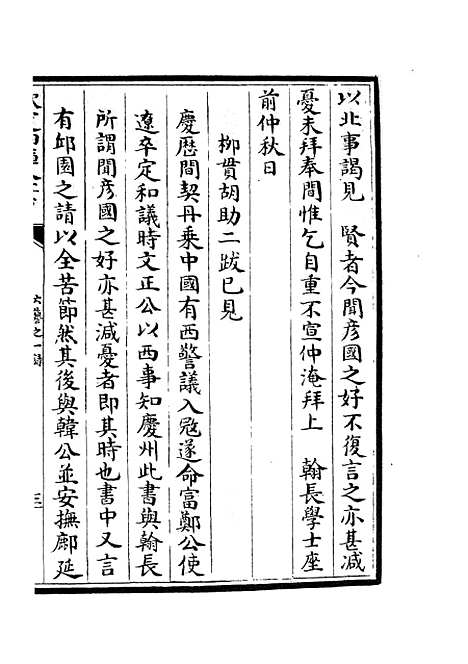 以北事謁見　賢者今聞彥國之好不復言之亦甚减
憂未拜奉間惟乞自重不宣仲淹拜上　翰長學士座
前仲秋日
柳貫胡助二跋已見
慶厯間契丹乘中國有西警議入冦遂命富鄭公使
遼卒定和議時文正公以西事知慶州此書與翰長
所謂聞彥國之好亦甚减憂者即其時也書中又言
有邱園之請以全苦節然其後與韓公並安撫鄜延
三